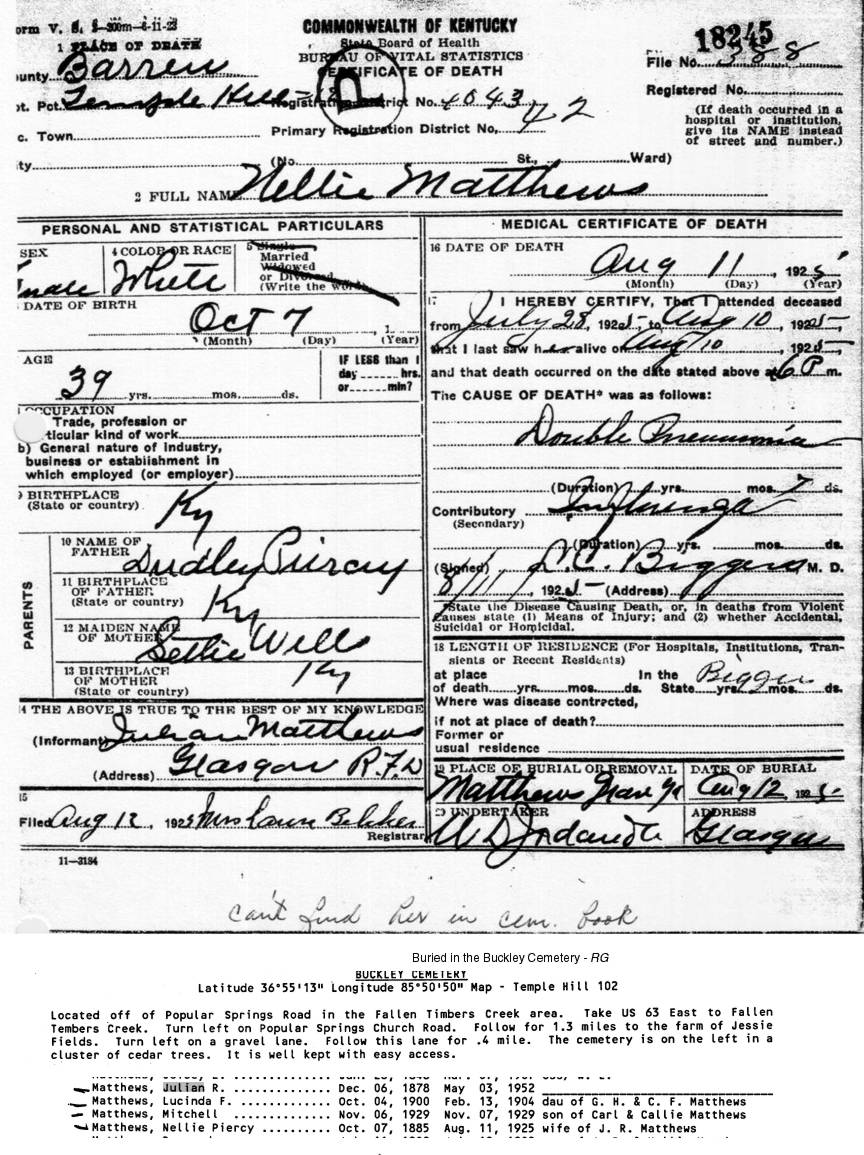 orm V. S. 2-300m-6-11-23
COMMONWEALTH OF KENTUCKY
State Board of Health
BUREAU OF VITAL STATISTICS
CERTIFICATE OF DEATH
18245
File No. 388
1 PLACE OF DEATH
ounty Barren
ot. Pct. Temple Hill
Registration District No. 4043
Registered No.
(If death occurred in a hospital or institution, give its NAME instead of street and number.)
c. Town
Primary Registration District No. 42
ty (No. St., Ward)
2 FULL NAME Nellie Matthews
PERSONAL AND STATISTICAL PARTICULARS
SEX
male
4 COLOR OR RACE
White
5 Single
Married
Widowed
or Divorced
(Write the word)
DATE OF BIRTH
Oct 7, 1
(Month) (Day) (Year)
AGE
39 yrs. mos. ds.
IF LESS than 1
day hrs.
or min?
OCCUPATION
Trade, profession or
ticular kind of work
b) General nature of industry,
business or establishment in
which employed (or employer)
9 BIRTHPLACE
(State or country) Ky
PARENTS
10 NAME OF
FATHER Dudley Piercy
11 BIRTHPLACE
OF FATHER
(State or country) Ky
12 MAIDEN NAME
OF MOTHER Bettie Wells
13 BIRTHPLACE
OF MOTHER
(State or country) Ky
4 THE ABOVE IS TRUE TO THE BEST OF MY KNOWLEDGE
(Informant) Julian Matthews
(Address) Glasgow R.F.D
15
Filed Aug 12, 1925 Mrs
Registrar
MEDICAL CERTIFICATE OF DEATH
16 DATE OF DEATH
Aug 11, 1925
(Month) (Day) (Year)
17 I HEREBY CERTIFY, That I attended deceased
from July 28, 1925, to Aug 10, 1925,
that I last saw her alive on Aug 10, 1925,
and that death occurred on the date stated above at 6 P m.
The CAUSE OF DEATH* was as follows:
Double Pneumonia
(Duration) yrs. mos. 7 ds.
Contributory Influenza
(Secondary)
(Duration) yrs. mos. ds.
(Signed) Biggers M. D.
8/11, 1925 (Address)
*State the Disease Causing Death, or, in deaths from Violent
Causes state (1) Means of Injury; and (2) whether Accidental,
Suicidal or Homicidal.
18 LENGTH OF RESIDENCE (For Hospitals, Institutions, Tran-
sients or Recent Residents)
at place In the
of death yrs. mos. ds. State yrs. mos. ds.
Where was disease contracted,
if not at place of death?
Former or
usual residence
19 PLACE OF BURIAL OR REMOVAL
Matthews Grave Yd
DATE OF BURIAL
Aug 12 1925
20 UNDERTAKER
ADDRESS
Glasgow
11—3184
can't find her in cem. book
Buried in the Buckley Cemetery - RG
BUCKLEY CEMETERY
Latitude 36°55'13" Longitude 85°50'50" Map - Temple Hill 102
Located off of Popular Springs Road in the Fallen Timbers Creek area. Take US 63 East to Fallen
Tembers Creek. Turn left on Popular Springs Church Road. Follow for 1.3 miles to the farm of Jessie
Fields. Turn left on a gravel lane. Follow this lane for .4 mile. The cemetery is on the left in a
cluster of cedar trees. It is well kept with easy access.
Matthews, Julian R. ............. Dec. 06, 1878 May 03, 1952
Matthews, Lucinda F. ............ Oct. 04, 1900 Feb. 13, 1904 dau of G. H. & C. F. Matthews
Matthews, Mitchell .............. Nov. 06, 1929 Nov. 07, 1929 son of Carl & Callie Matthews
Matthews, Nellie Piercy ......... Oct. 07, 1885 Aug. 11, 1925 wife of J. R. Matthews